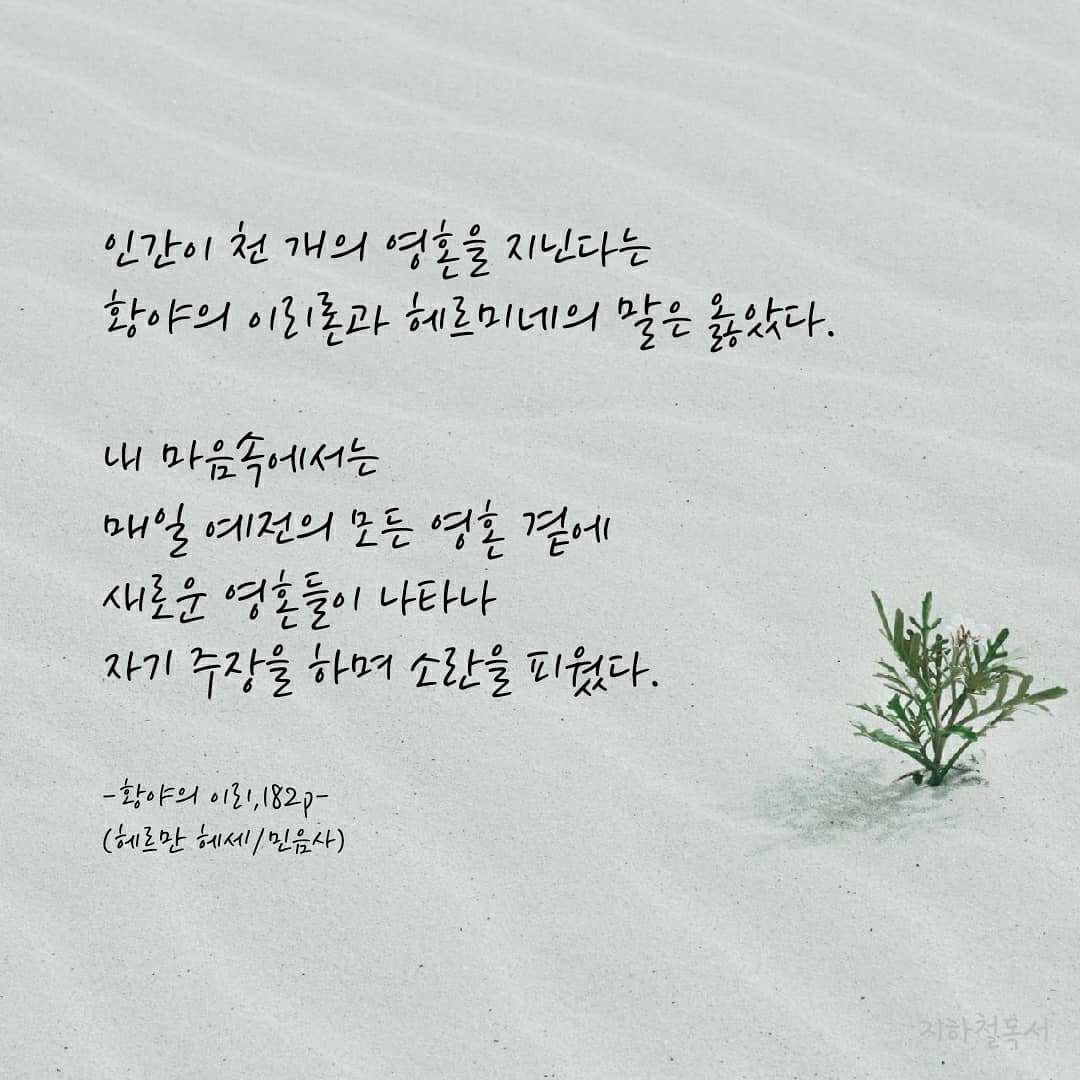 인간이 천 개의 영혼을 지닌다는
황야의 이리론과 헤르미네의 말은 옳았다.
내 마음속에서는
매일 예전의 모든 영혼 곁에
새로운 영혼들이 나타나
자기 주장을 하며 소란을 피웠다.
-황야의 이리,182p-
(헤르만 헤세/민음사)
지하철독서